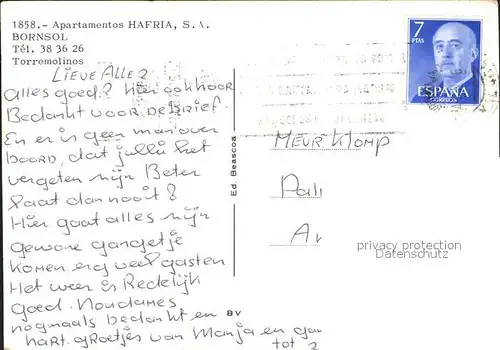 1858.- Apartamentos HAFRIA, S. A.
BORNSOL
Tél. 38 36 26
Torremolinos
7
PTAS
ESPAÑA
CORREOS
LIEVE ALLE 2
Alles goed? hier ook hoor
Bedankt voor de Brief.
En er is geen man over
boord, dat jullie het
vergeten zijn Beter
laat dan nooit!
Hier gaat alles zijn
gewone gangetje
komen erg veel gasten
Het weer is Redelijk
goed. Nou dames
nogmaals bedankt en
hart. groetjes van Manja en
tot 2
Ed. Beascoa
BV
MEUR KLOMP
Pall
Ar
privacy protection
Datenschutz